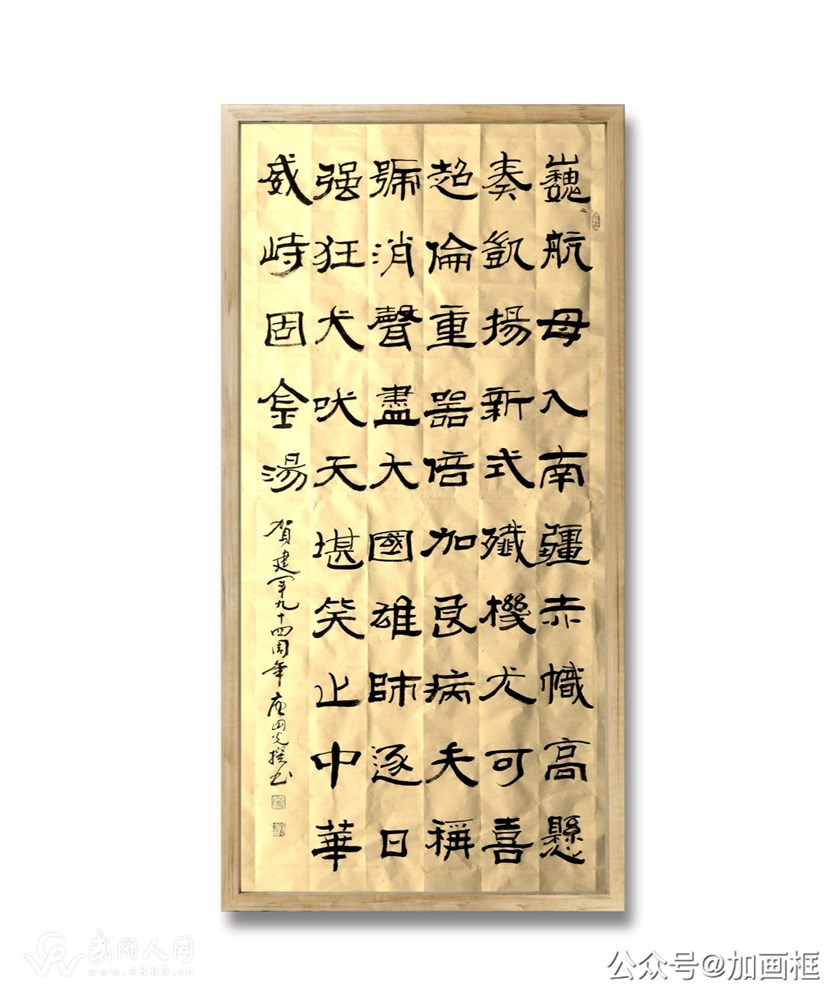 巍〻航母入南疆赤幟高懸
奏凱揚新式殲機尤可喜
超倫重器倍加良病夫稱
號消聲盡大國雄師逐日
强狂犬吠天堪笑止中華
威峙固金湯
贺建军九十四周年 撰书
武冈人网
公众号@加画框